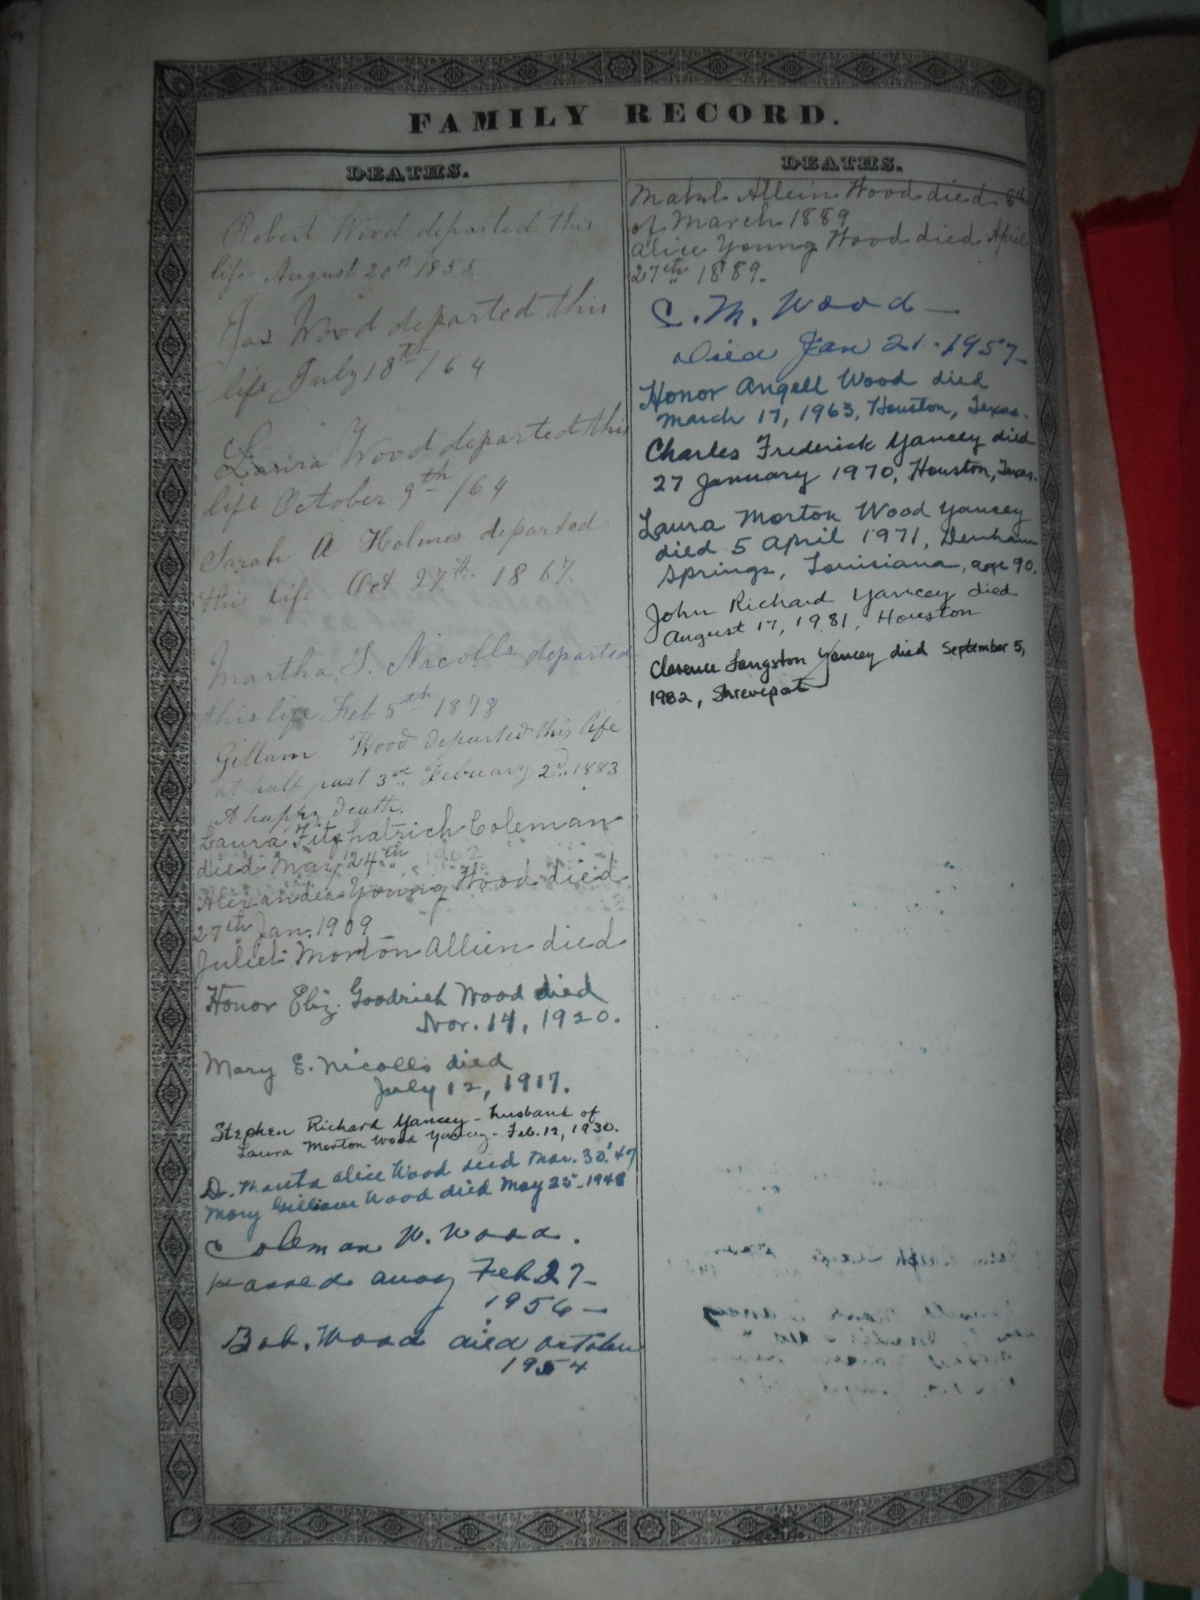 FAMILY RECORD.
DEATHS.
Robert Wood departed this
life August 20th
Jas Wood departed this
life July 18th /64
Wood departed this
life October 9th /64
Sarah A Holmes departed
this life Oct 27th 1867.
Martha S. Nicolls departed
this life Feb 5th 1878
Gillam Wood departed this life
at half past 3 February 2d. 1883
A happy death.
Laura Fitzhatrich Coleman
died May 24th 1902
Alexander Young Wood died
27th Jan. 1909
Juliet Morton Allien died
Honor Eliz. Goodrich Wood died
Nov. 14, 1920.
Mary E. Nicolls died
July 12, 1917.
Stephen Richard Yancey - husband of
Laura Morton Wood Yancey - Feb. 12, 1930.
Dr. Alice Wood died Mar. 30, '47
Mary Gilliam Wood died May 25 - 1948
Coleman W. Wood.
passed away Feb 27 -
1956 -
Bob. Wood died October
1954
DEATHS.
Mabel Allein Wood died 8th
of March 1889
Alice Young Wood died April
27th 1889.
C. M. Wood -
died Jan 21 - 1957 -
Honor Angell Wood died
March 17, 1963, Houston, Texas.
Charles Frederick Yancey died
27 January 1970, Houston, Texas.
Laura Morton Wood Yancey
died 5 April 1971, Denham
Springs, Louisiana, age 90.
John Richard Yancey died
August 17, 1981, Houston
Clarence Langston Yancey died September 5,
1982, Shreveport